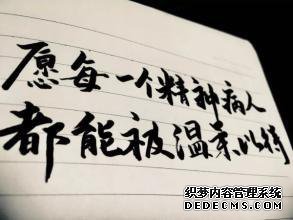 愿每一个精神病人
都能被温柔以待
织梦内容管理系统
DEDECMS.COM